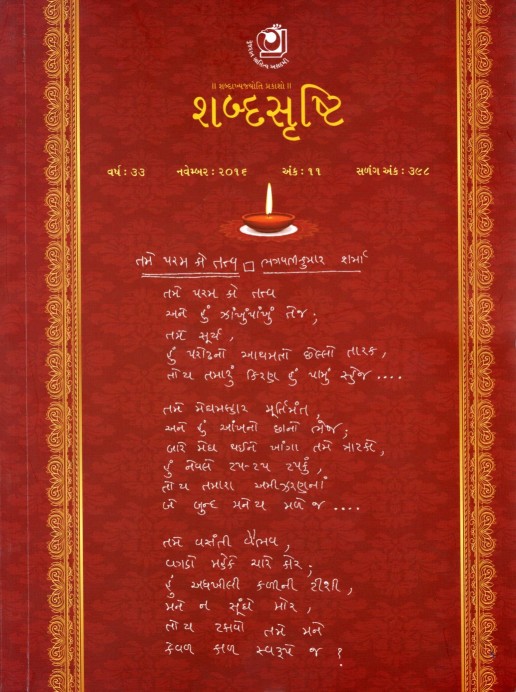 ગુજરાત સાહિત્ય અકાદમી
॥ શબ્દાખ્યજ્યોતિ પ્રકાશો ॥
શબ્દસૃષ્ટિ
વર્ષ : ૩૩ નવેમ્બર : ૨૦૧૬ અંક : ૧૧ સળંગ અંક : ૩૯૮
તમે પરમ કો તત્ત્વ □ ભગવતીકુમાર શર્મા
તમે પરમ કો તત્ત્વ
અને હું ઝાંખુંપાંખું તેજ;
તમે સૂર્ય,
હું પરોઢનો આથમતો છેલ્લો તારક,
તોય તમારું કિરણ હું પામું સ્હેજ ....
તમે મેઘમલ્હાર મૂર્તિમંત,
અને હું આંખનો છાનો ભેજ;
બારે મેઘ થઈને ખાંગા તમે ત્રાટકો,
હું નેવલે ટપ-ટપ ટપકું,
તો ય તમારા અમીઝરણનાં
બે બુન્દ મનેય મળે જ ....
તમે વસંતી વૈભવ,
વગડો મ્હેકે ચારે કોર;
હું અધખીલી કળીની ટીશી,
મને ન સૂંઘે મોર,
તો ય ટકાવો તમે મને
કેવળ કાળ સ્વરૂપે જ ?